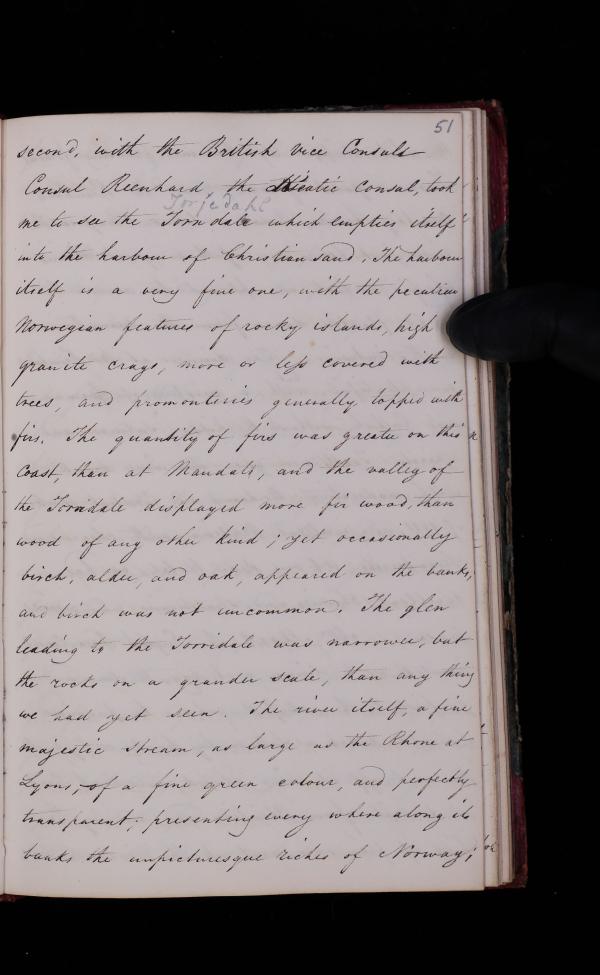 51
second, with the British vice Consuls
Consul Reenhard, the consul, took
Torjedahl
me to see the Torndale which empties itself
into the harbour of Christiansand. The harbour
itself is a very fine one, with the peculiar
Norwegian features of rocky islands, high
granite crags, more or less covered with
trees, and promonteries generally topped with
firs. The quantity of firs was greater on this
Coast, than at Mandals, and the valley of
the Torridale displayed more fir wood, than
wood of any other kind; yet occasionally
birch, alder, and oak, appeared on the banks,
and birch was not uncommon. The glen
leading to the Torridale was narrower, but
the rocks on a grander scale, than any thing
we had yet seen. The river itself, a fine
majestic stream, as large as the Rhone at
Lyons, of a fine green colour, and perfectly
transparent; presenting every where along its
banks the unpicturesque riches of Norway;